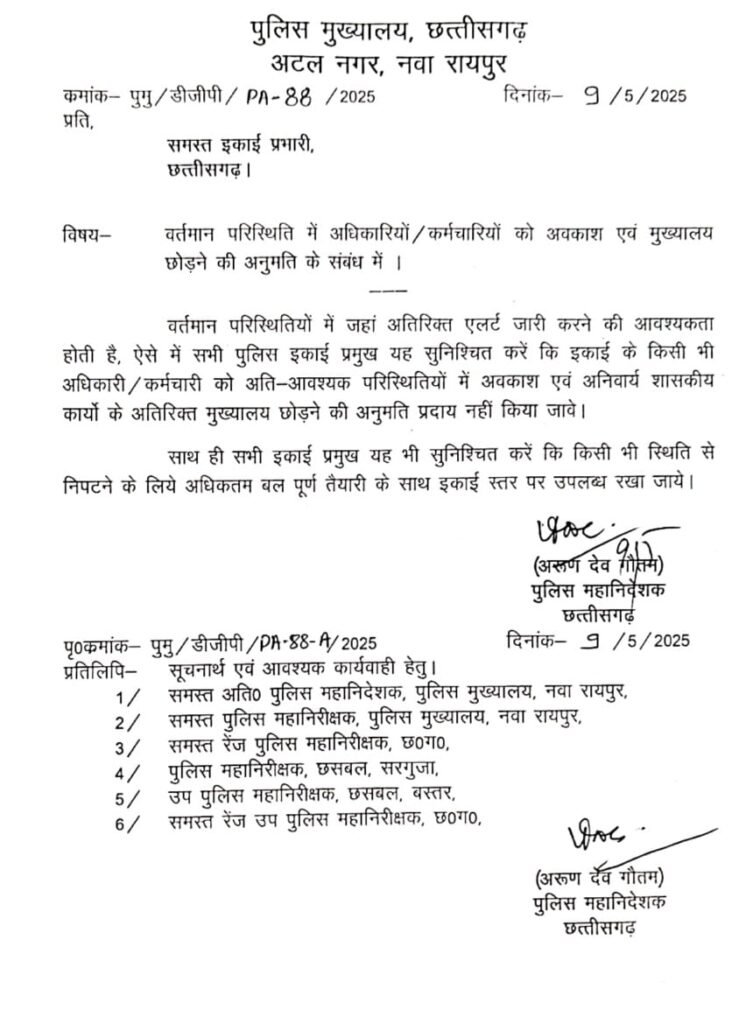 पुलिस मुख्यालय, छत्तीसगढ़
अटल नगर, नवा रायपुर
कमांक– पुमु/डीजीपी/ PA-88 /2025 दिनांक– 9 /5/2025
प्रति,
समस्त इकाई प्रभारी,
छत्तीसगढ़।
विषय– वर्तमान परिस्थिति में अधिकारियों/कर्मचारियों को अवकाश एवं मुख्यालय
छोड़ने की अनुमति के संबंध में ।
वर्तमान परिस्थितियों में जहां अतिरिक्त एलर्ट जारी करने की आवश्यकता
होती है, ऐसे में सभी पुलिस इकाई प्रमुख यह सुनिश्चित करें कि इकाई के किसी भी
अधिकारी/कर्मचारी को अति–आवश्यक परिस्थितियों में अवकाश एवं अनिवार्य शासकीय
कार्यो के अतिरिक्त मुख्यालय छोड़ने की अनुमति प्रदाय नहीं किया जावे।
साथ ही सभी इकाई प्रमुख यह भी सुनिश्चित करें कि किसी भी स्थिति से
निपटने के लिये अधिकतम बल पूर्ण तैयारी के साथ इकाई स्तर पर उपलब्ध रखा जाये।
(अरूण देव गौतम)
पुलिस महानिदेशक
छत्तीसगढ़
पृ०कमांक– पुमु/डीजीपी/PA-88-A/2025 दिनांक– 9 /5/2025
प्रतिलिपि– सूचनार्थ एवं आवश्यक कार्यवाही हेतु।
1/ समस्त अति० पुलिस महानिदेशक, पुलिस मुख्यालय, नवा रायपुर,
2/ समस्त पुलिस महानिरीक्षक, पुलिस मुख्यालय, नवा रायपुर,
3/ समस्त रेंज पुलिस महानिरीक्षक, छ०ग०,
4/ पुलिस महानिरीक्षक, छसबल, सरगुजा,
5/ उप पुलिस महानिरीक्षक, छसबल, बस्तर,
6/ समस्त रेंज उप पुलिस महानिरीक्षक, छ०ग०,
(अरूण देव गौतम)
पुलिस महानिदेशक
छत्तीसगढ़